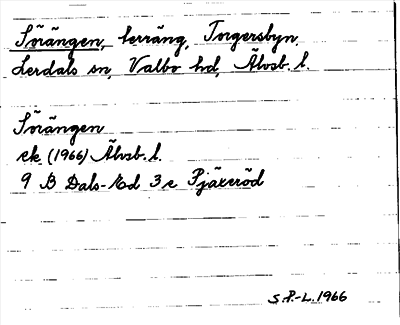 Sörängen, terräng, Torgersbyn,
Lerdals sn, Valbo hd, Älvsb. l.
Sörängen
ek (1966) Älvsb. l.
9 B Dals-Ed 3 e Pjäxeröd
S.P.-L. 1966